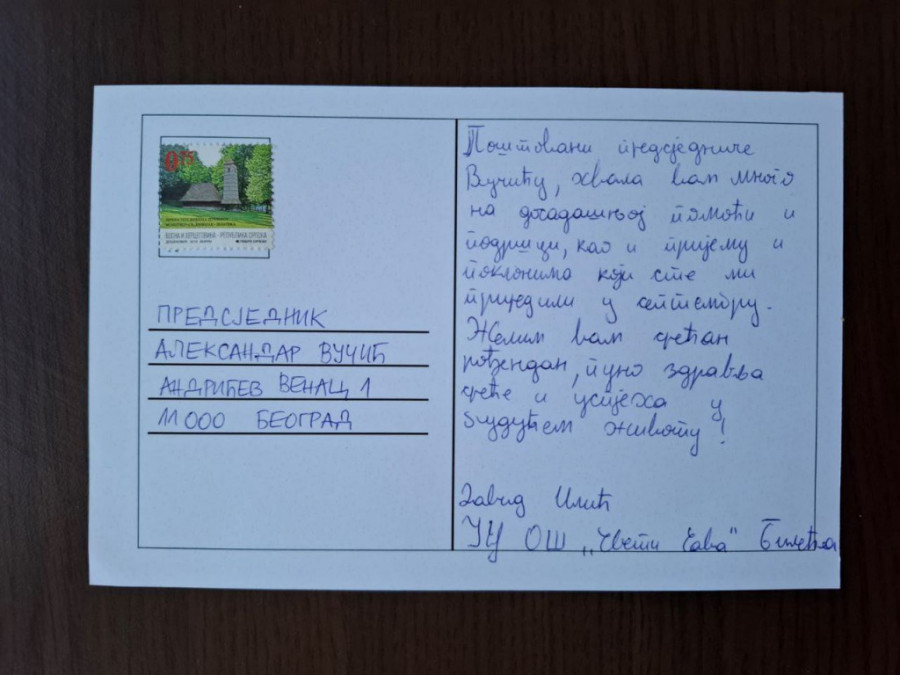 БОСНА И ХЕРЦЕГОВИНА - РЕПУБЛИКА СРПСКА
ПРЕДСЈЕДНИК
АЛЕКСАНДАР ВУЧИЋ
АНДРИЋЕВ ВЕНАЦ 1
11000 БЕОГРАД
Поштовани предсједниче
Вучићу, хвала вам много
на досадашњој помоћи и
подршци, као и пријему и
поклонима који сте ми
приредили у септембру.
Желим вам срећан
рођендан, пуно здравља
среће и успјеха у
будућем животу!
Давид Илић
ЈУ ОШ „Свети Сава" Билећа